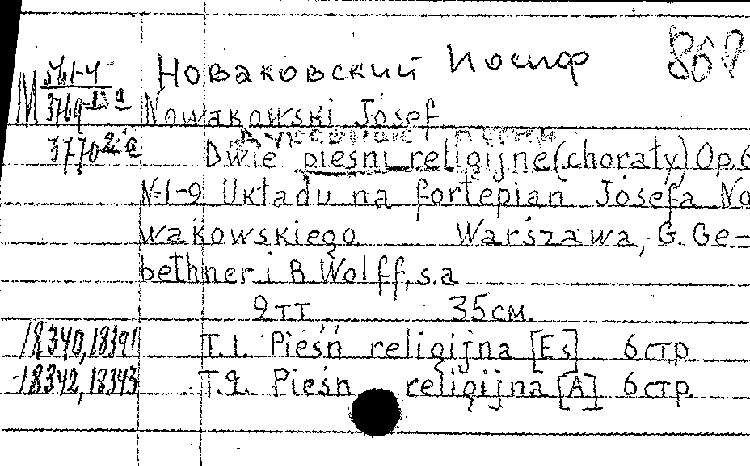 Новаковский Иосиф
Nowakowski Josef
Dwie pieśni religijne (chorały) Op. 6
N-1-9 Układu na fortepian Josefa No
wakowskiego Warszawa, G. Ge-
bethner i R. Wolff, s.a
2 тт 35 см.
18340, 18391 Т.1. Pieśń religijna [Es] 6 стр
18342, 18343 Т.2. Pieśń religijna [A] 6 стр.